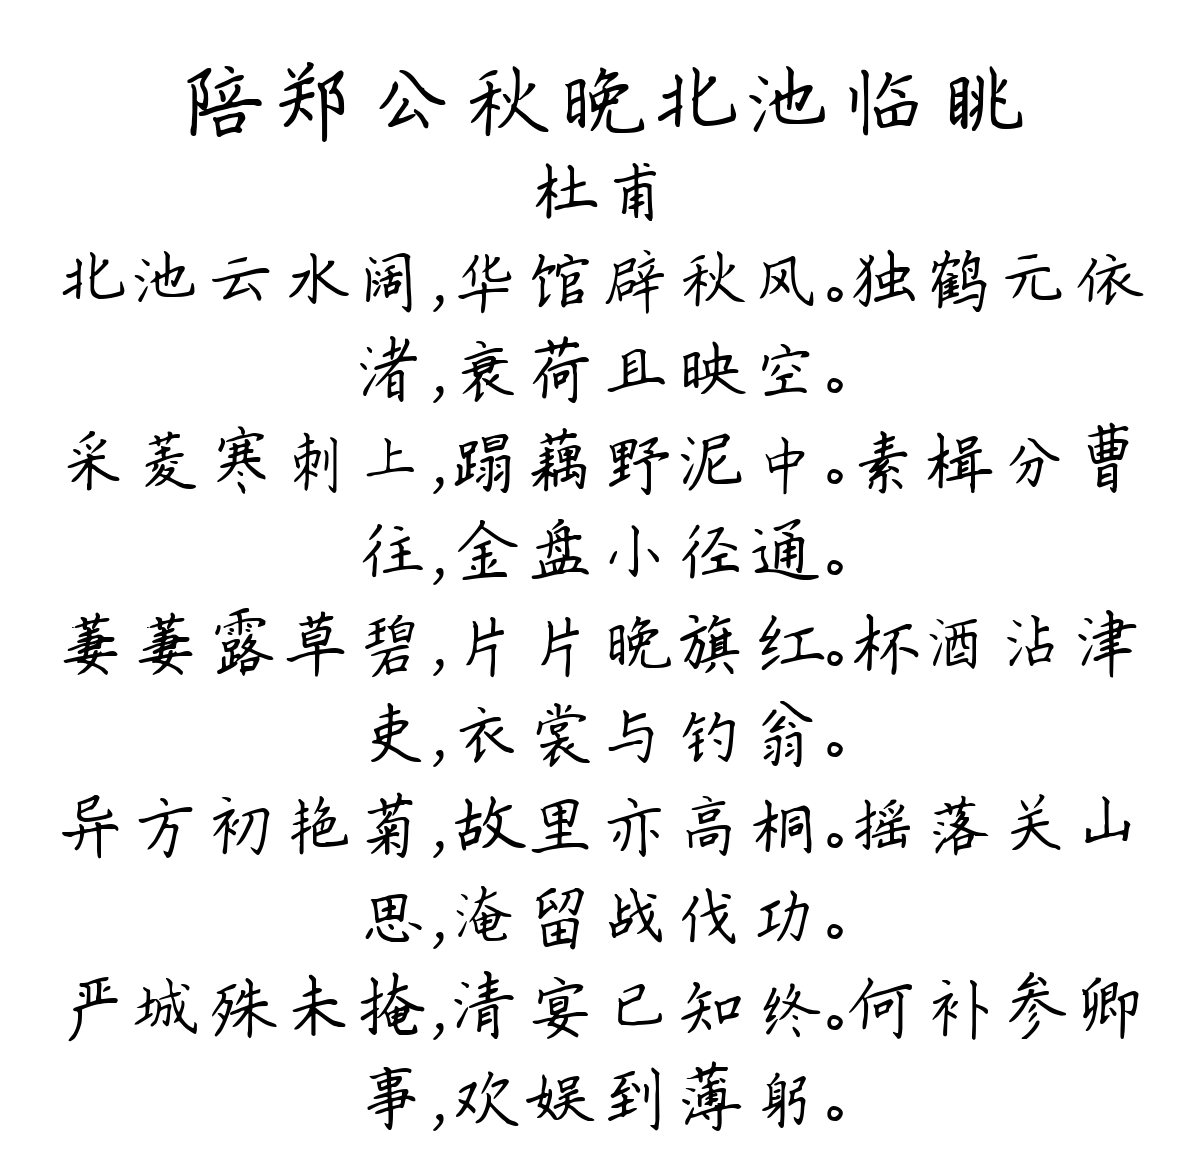 陪郑公秋晚北池临眺
杜甫
北池云水阔,华馆辟秋风。独鹤元依
渚,衰荷且映空。
采菱寒刺上,蹋藕野泥中。素楫分曹
往,金盘小径通。
萋萋露草碧,片片晚旗红。杯酒沾津
吏,衣裳与钓翁。
异方初艳菊,故里亦高桐。摇落关山
思,淹留战伐功。
严城殊未掩,清宴已知终。何补参卿
事,欢娱到薄躬。